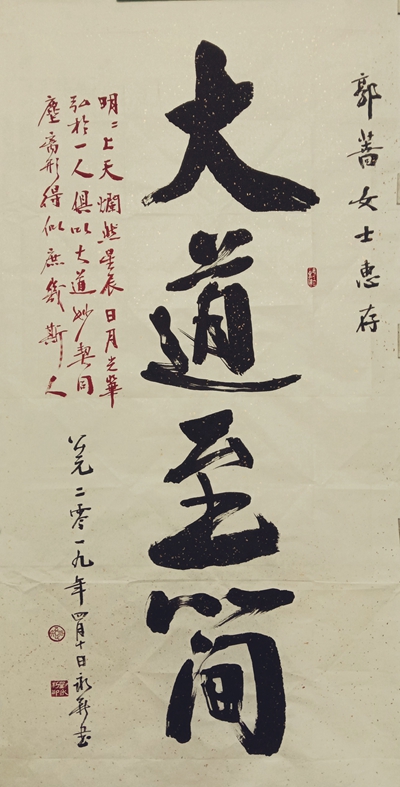 郭蔷女士惠存
大道至简
明二上天烂然星辰日月光华
弘于一人俱以大道妙契同
尘离形得似庶几斯人
公元二零一九年四月十日永新书